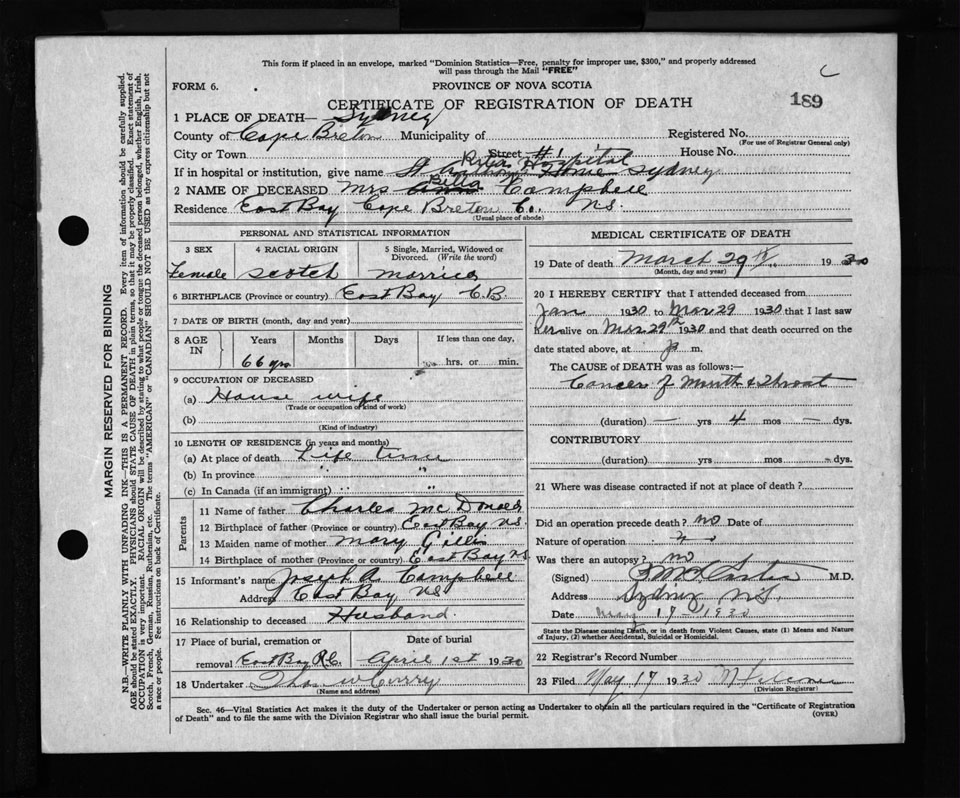 This form if placed in an envelope, marked "Dominion Statistics—Free, penalty for improper use, $300," and properly addressed
will pass through the Mail "FREE"
FORM 6.
PROVINCE OF NOVA SCOTIA
CERTIFICATE OF REGISTRATION OF DEATH
189
1 PLACE OF DEATH— Sydney
County of Cape Breton Municipality of
Registered No.
(For use of Registrar General only)
City or Town Street #1 House No.
If in hospital or institution, give name St Hospital Sydney
2 NAME OF DECEASED Mrs Bella Campbell
Residence East Bay Cape Breton Co., N.S.
(Usual place of abode)
PERSONAL AND STATISTICAL INFORMATION
3 SEX 4 RACIAL ORIGIN 5 Single, Married, Widowed or
Divorced. (Write the word)
Female Scotch Married
6 BIRTHPLACE (Province or country) East Bay C.B.
7 DATE OF BIRTH (month, day and year)
8 AGE IN Years Months Days If less than one day,
66 yrs hrs. or min.
9 OCCUPATION OF DECEASED
(a) House wife
(Trade or occupation or kind of work)
(b)
(Kind of industry)
10 LENGTH OF RESIDENCE (in years and months)
(a) At place of death Life time
(b) In province " "
(c) In Canada (if an immigrant) " "
Parents
11 Name of father Charles McDonald
12 Birthplace of father (Province or country) East Bay N.S.
13 Maiden name of mother Mary Gillis
14 Birthplace of mother (Province or country) East Bay N.S.
15 Informant's name Joseph A Campbell
Address East Bay N.S.
16 Relationship to deceased Husband.
17 Place of burial, cremation or Date of burial
removal East Bay R.C. April 1st 1930
18 Undertaker Thos W Curry
(Name and address)
MEDICAL CERTIFICATE OF DEATH
19 Date of death March 29th 1930
(Month, day and year)
20 I HEREBY CERTIFY that I attended deceased from
Jan 1930 to Mar 29 1930 that I last saw
her alive on Mar 29th 1930 and that death occurred on the
date stated above, at p m.
The CAUSE OF DEATH was as follows:—
Cancer of Mouth & Throat
(duration) — yrs 4 mos — dys.
CONTRIBUTORY
(duration) yrs mos dys.
21 Where was disease contracted if not at place of death?
Did an operation precede death? no Date of
Nature of operation
Was there an autopsy? no
(Signed) M.D.
Address Sydney N.S.
Date May 17 1930
State the Disease causing Death, or in death from Violent Causes, state (1) Means and Nature
of Injury, (2) whether Accidental, Suicidal or Homicidal.
22 Registrar's Record Number
23 Filed May 17 1930
(Division Registrar)
Sec. 46—Vital Statistics Act makes it the duty of the Undertaker or person acting as Undertaker to obtain all the particulars required in the "Certificate of Registration
of Death" and to file the same with the Division Registrar who shall issue the burial permit.
(OVER)
MARGIN RESERVED FOR BINDING
N.B.—WRITE PLAINLY WITH UNFADING INK—THIS IS A PERMANENT RECORD. Every item of information should be carefully supplied.
AGE should be stated EXACTLY. PHYSICIANS should STATE CAUSE OF DEATH in plain terms, so that it may be properly classified. Exact statement of
OCCUPATION is very important. RACIAL ORIGIN will be described by stating to what people or tongue the deceased person belonged, whether English, Irish,
Scotch, French, German, Russian, Ruthenian, etc. The terms "AMERICAN" or "CANADIAN" SHOULD NOT BE USED as they express citizenship but not
a race or people. See instructions on back of Certificate.